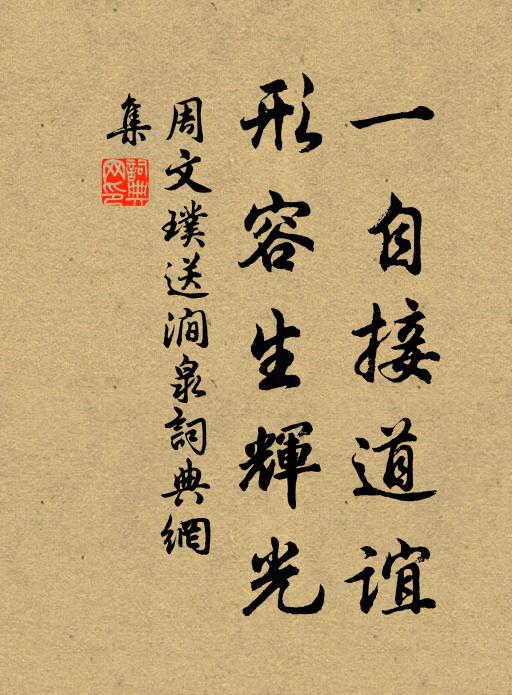 一自接道誼
形容生輝光
周文璞送澗泉詞典網
集
詞典網印